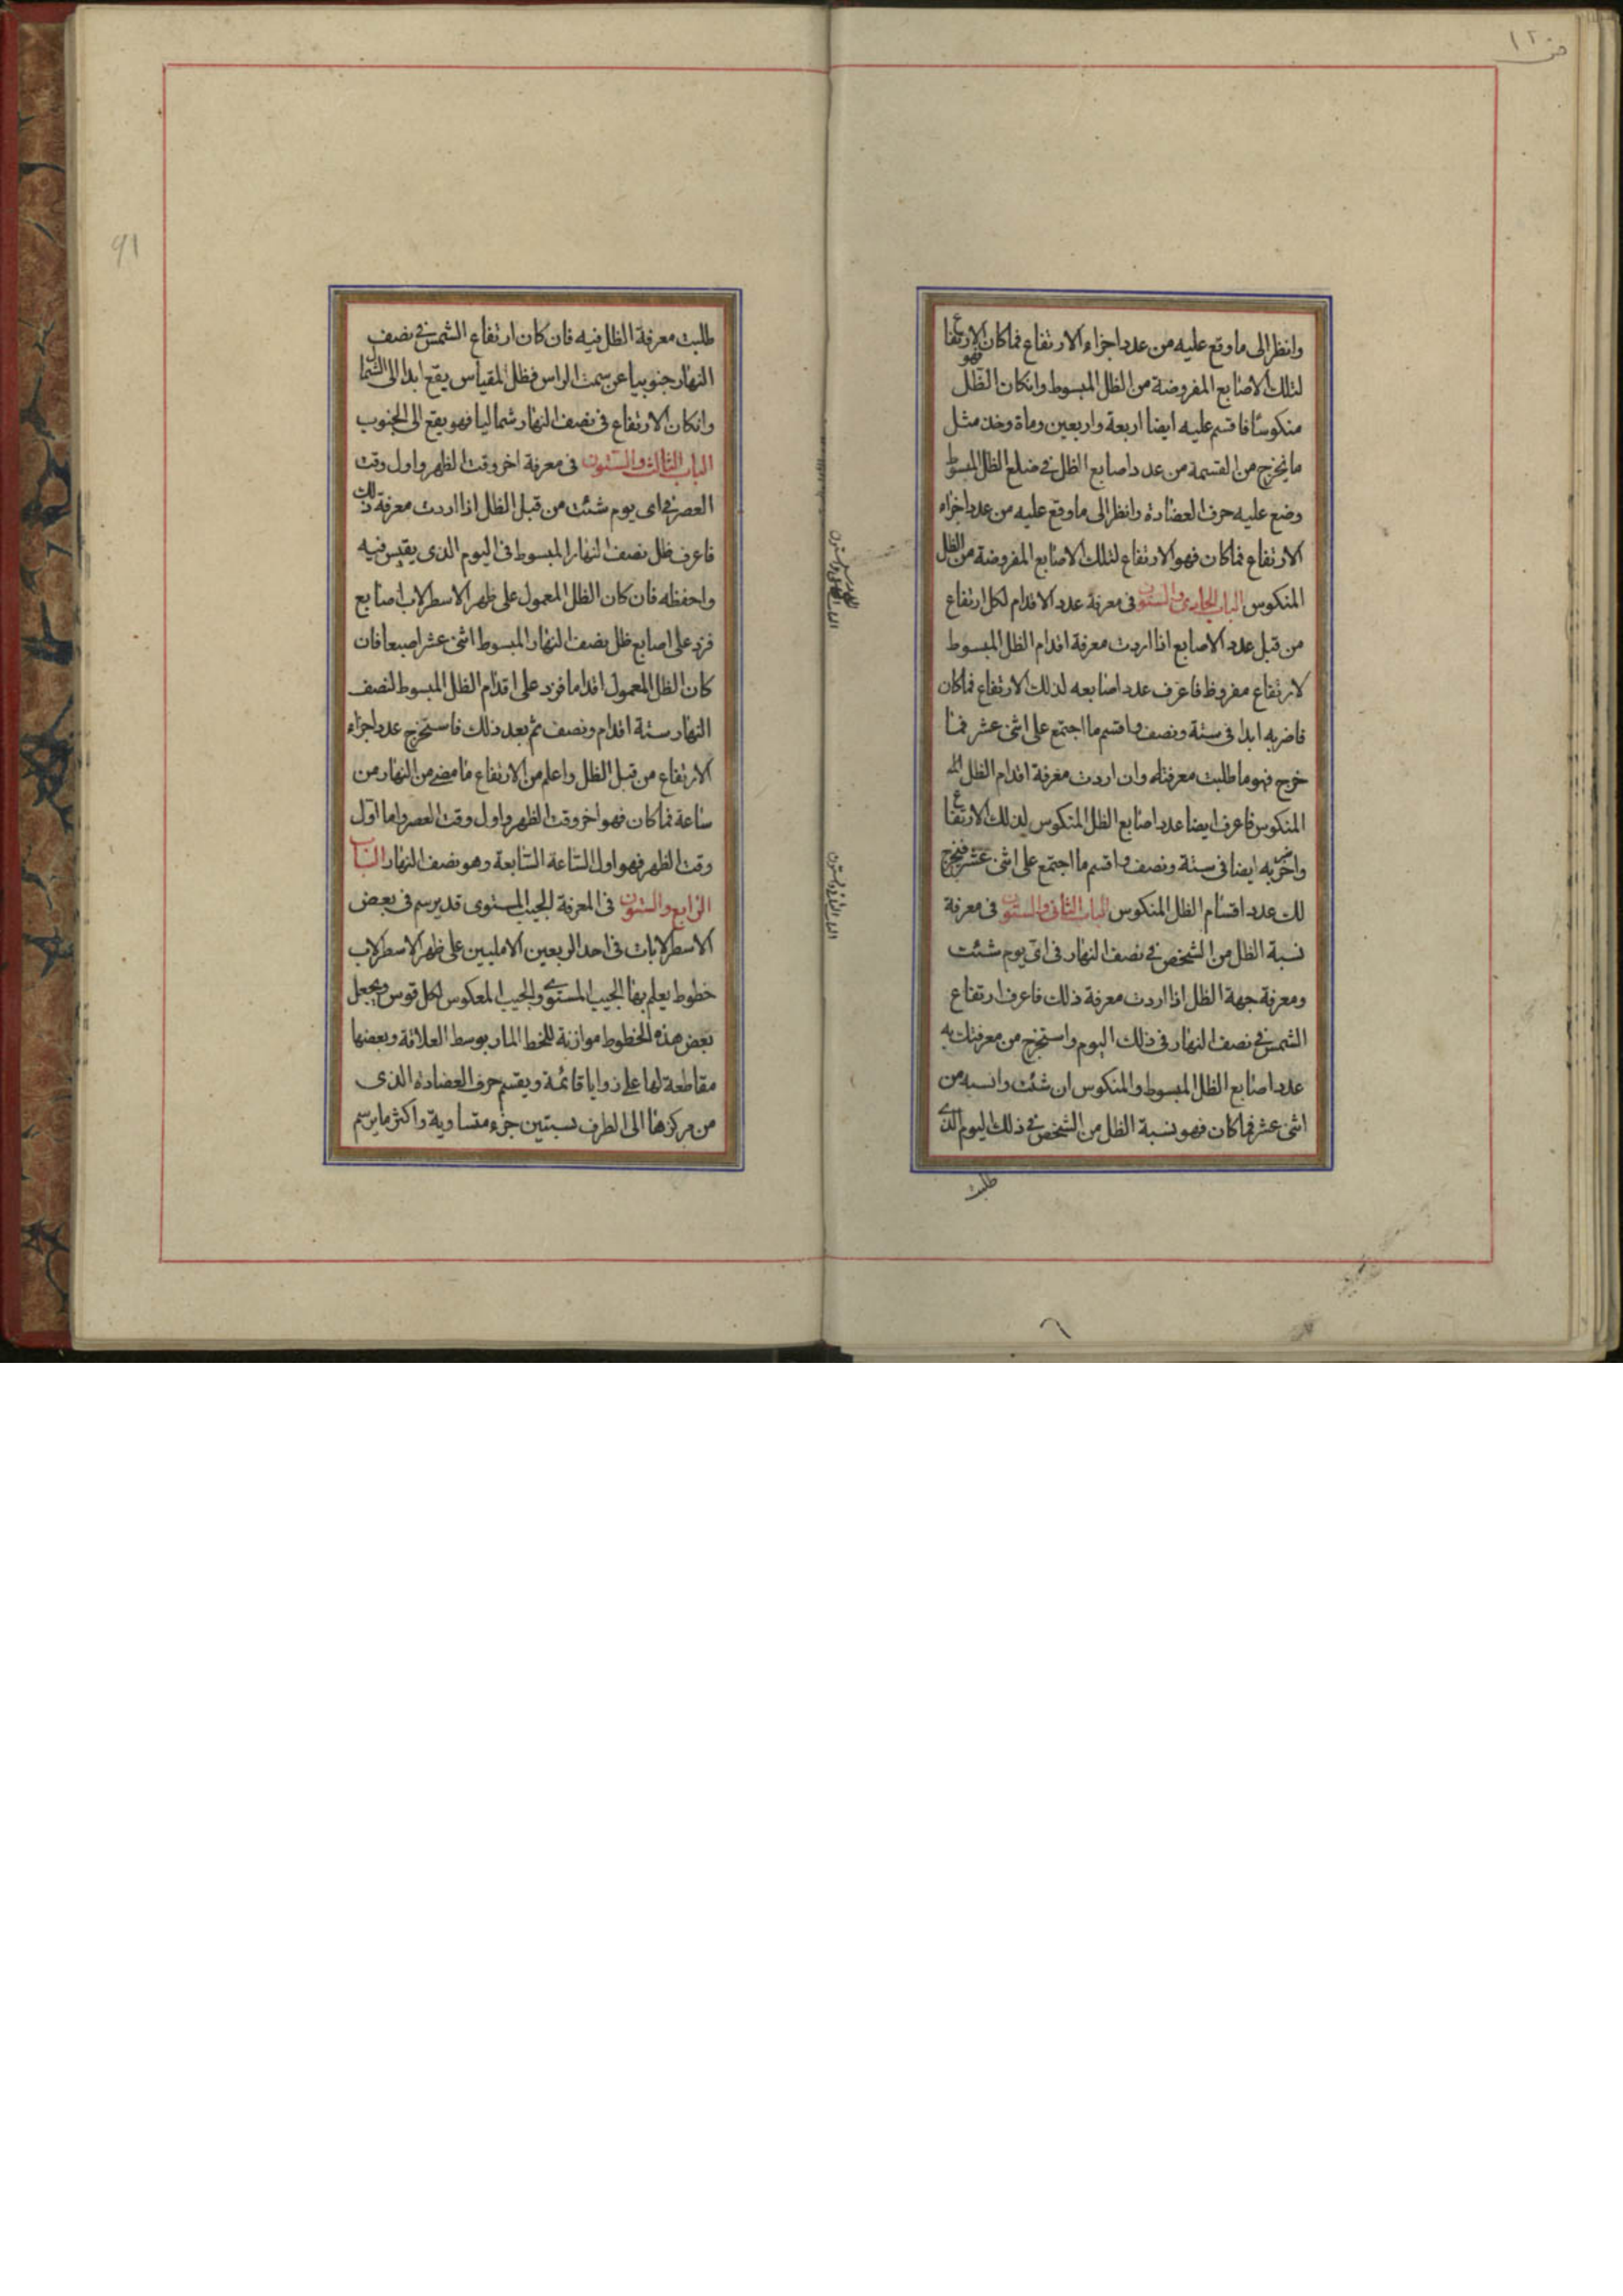 وانظر الى ما وقع عليه من عدد اجزاء الارتفاع فما كان فهو الارتفاع
لتلك الاصابع المفروضة من الظل المبسوط وانكان الظل
منكوسًا فاقسم عليه ايضا اربعة واربعين وماة وخذ مثل
ما يخرج من القسمة من عدد اصابع الظل في ضلع الظل المبسوط
وضع عليه حرف العضادة وانظر الى ما وقع عليه من عدد اجزاء
الارتفاع فما كان فهو الارتفاع لتلك الاصابع المفروضة من الظل
المنكوس الباب الحادى والستون فى معرفة عدد الاقدام لكل ارتفاع
من قبل عدد الاصابع اذا اردت معرفة اقدام الظل المبسوط
لارتفاع مفروظ فاعرف عدد اصابعه لذلك الارتفاع فما كان
فاضربه ابدا فى ستة ونصف واقسم ما اجتمع على اثنى عشر فما
خرج فهو ما طلبت معرفته وان اردت معرفة اقدام الظل
المنكوس فاعرف ايضا عدد اصابع الظل المنكوس لذلك الارتفاع
واضربه ايضا فى ستة ونصف واقسم ما اجتمع على اثنى عشر فيخرج
لك عدد اقسام الظل المنكوس الباب الثانى والستون فى معرفة
نسبة الظل من الشخص في نصف النهار فى اى يوم شئت
ومعرفة جهة الظل اذا اردت معرفة ذلك فاعرف ارتفاع
الشمس في نصف النهار فى ذلك اليوم واستخرج من معرفتك به
عدد اصابع الظل المبسوط والمنكوس ان شئت وانسبه من
اثنى عشر فما كان فهو نسبة الظل من الشخص في ذلك اليوم الذى
طلبت
طلبت معرفة الظل فيه فان كان ارتفاع الشمس في نصف
النهار جنوبيا عن سمت الراس فظل المقياس يقع ابدا الى الشمال
وانكان الارتفاع فى نصف النهار شماليا فهو يقع الى الجنوب
الباب الثالث والستون فى معرفة اخر وقت الظهر واول وقت
العصر في اى يوم شئت من قبل الظل اذا اردت معرفة ذلك
فاعرف ظل نصف النهار المبسوط فى اليوم الذى يقيس فيه
واحفظه فان كان الظل المعمول على ظهر الاسطرلاب اصابع
فزد على اصابع ظل نصف النهار المبسوط اثنى عشر اصبعا فان
كان الظل المعمول اقداما فزد على اقدام الظل المبسوط لنصف
النهار ستة اقدام ونصف ثم بعد ذلك فاستخرج عدد اجزاء
الارتفاع من قبل الظل واعلم من الارتفاع ما مضى من النهار من
ساعة فما كان فهو اخر وقت الظهر واول وقت العصر واما اول
وقت الظهر فهو اول الساعة السابعة وهو نصف النهار الباب
الرابع والستون فى المعرفة الجيب المستوى قد يرسم فى بعض
الاسطرلابات فى احد الربعين الاعليين على ظهر الاسطرلاب
خطوط يعلم بها الجيب المستوى والجيب المعكوس لكل قوس ويجعل
بعض هذه الخطوط موازنة للخط المار بوسط العلاقة وبعضها
مقاطعة لها على زوايا قائمة ويقسم حرف العضادة الذى
من مركزها الى الطرف نسبتين جزء متساوية واكثر ما يرسم
91